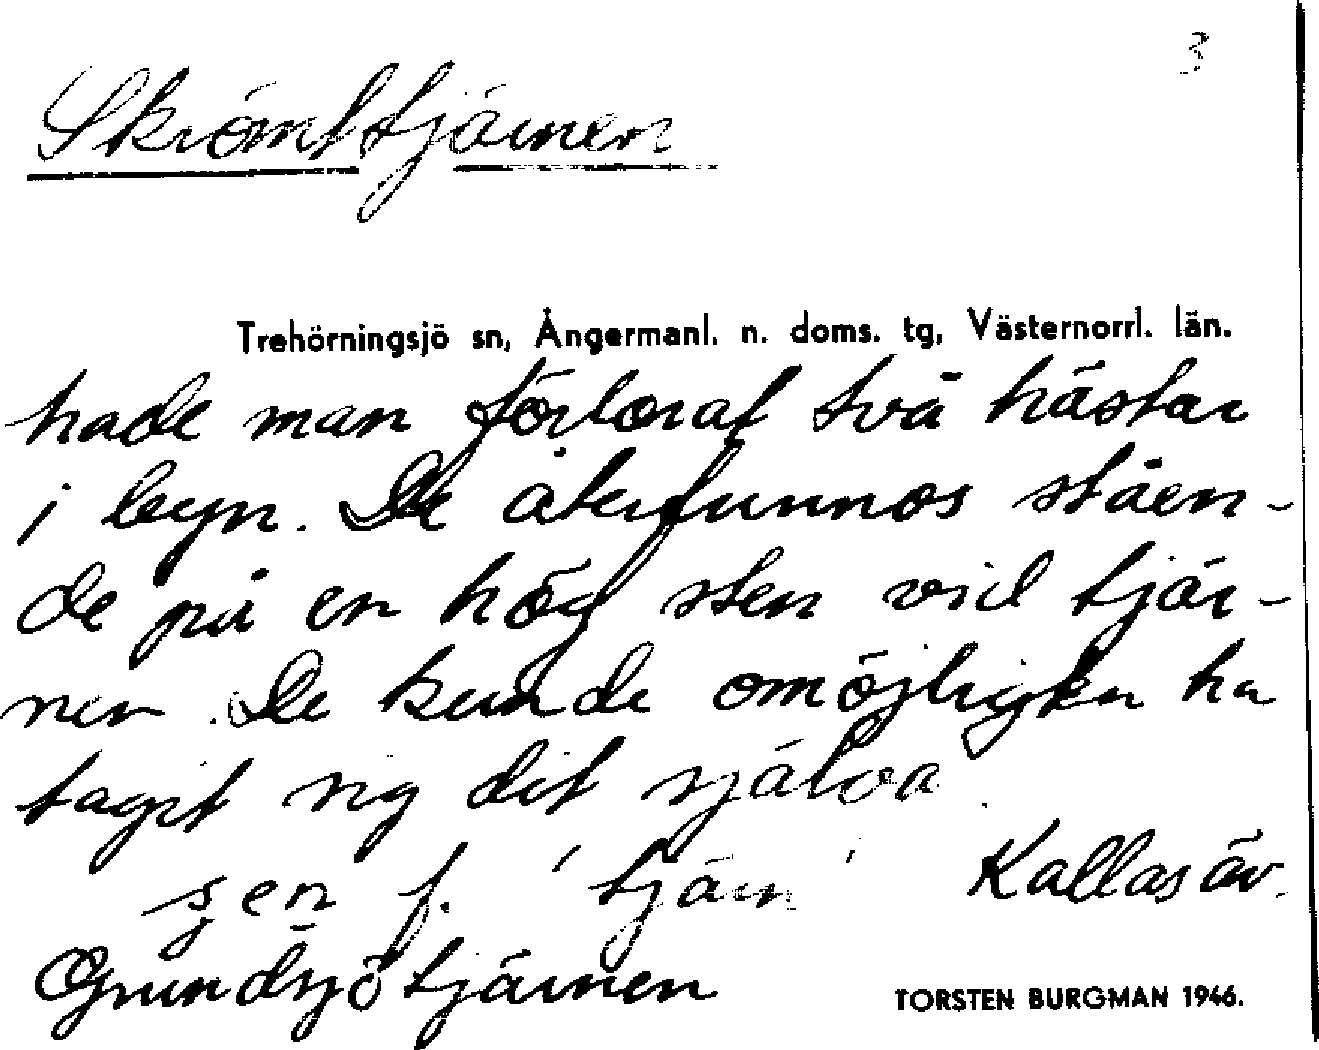 3
Skrömttjärnen
Trehörningsjö sn, Ångermanl. n. doms. tg, Västernorrl. län.
hade man förlorat två hästar
i byn. De återfunnos ståen-
de på en hög sten vid tjär-
nen. De kunde omöjligen ha
tagit sig dit själva.
sen f. 'tjärn' Kallas äv.
Grundsjötjärnen
TORSTEN BURGMAN 1946.